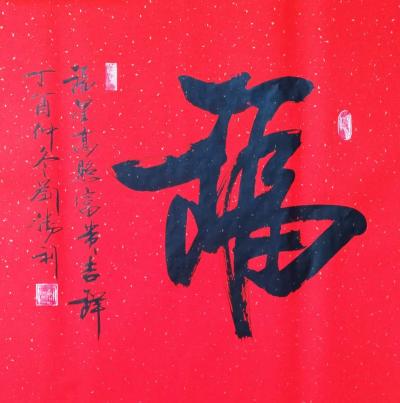 福
福星高照富贵吉祥
丁酉仲冬劉勝利